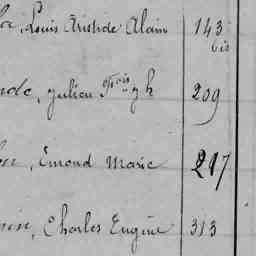 Louis Aristide Alain 143
bis
Julien Fçois 209
Emond Marie 217
Charles Eugène 313